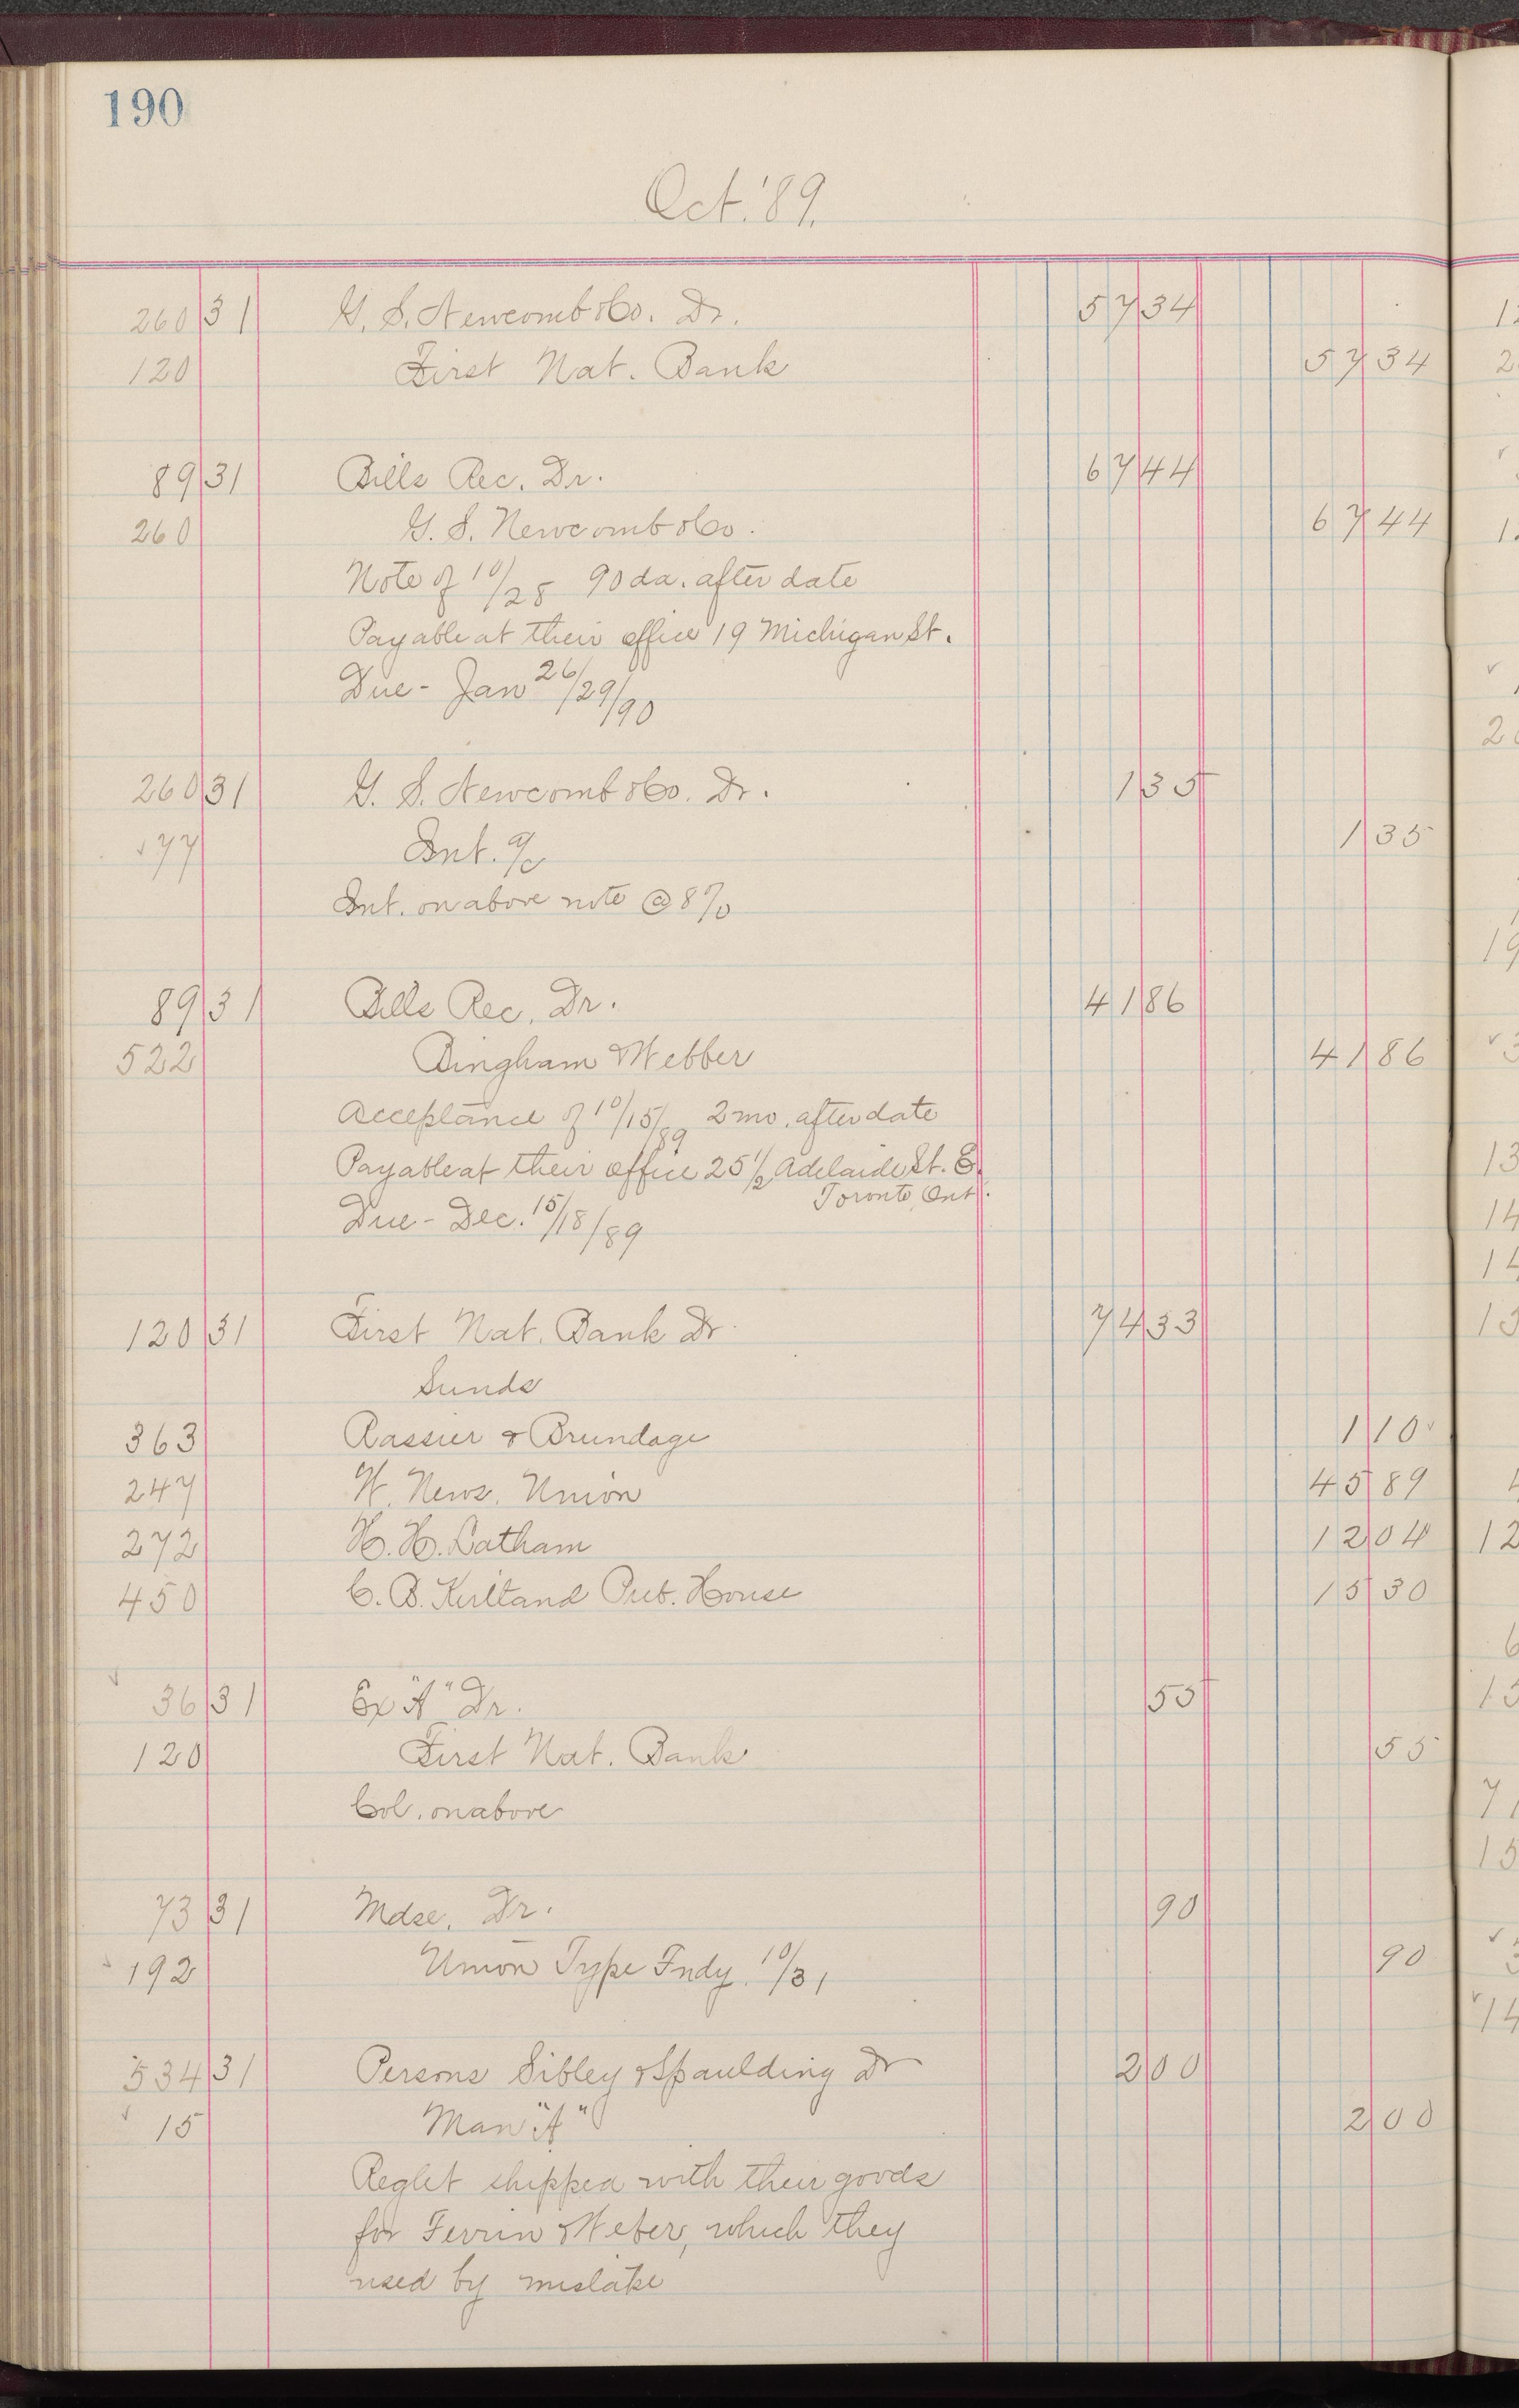 190
Oct. '89.
260 31 G. S. Newcomb & Co. Dr. 57 34
120 First Nat. Bank 57 34
89 31 Bills Rec. Dr. 67 44
260 G. S. Newcomb & Co. 67 44
Note of 10/28 90 da. after date
Payable at their office 19 Michigan St.
Due - Jan 26/29/90
260 31 G. S. Newcomb & Co. Dr. 1 35
✓77 Int. a/c 1 35
Int. on above note @ 8%
89 31 Bills Rec. Dr. 41 86
522 Bingham & Webber 41 86
Acceptance of 10/15/89 2 mo. after date
Payable at their office 25 1/2 Adelaide St. E.
Toronto, Ont.
Due - Dec. 15/18/89
120 31 First Nat. Bank Dr. 74 33
Sunds
363 Rassier & Brundage 1 10 ✓
247 W. News. Union 45 89
272 H. H. Latham 12 04
450 C. B. Kirtland Pub. House 15 30
✓ 36 31 Ex "A" Dr. 55
120 First Nat. Bank 55
Col. on above
73 31 Mdse. Dr. 90
192 Union Type Fndy. 10/31 90
534 31 Persons Sibley & Spaulding Dr 2 00
✓ 15 Man "A" 2 00
Reglet shipped with their goods
for Ferrin & Weber, which they
used by mistake